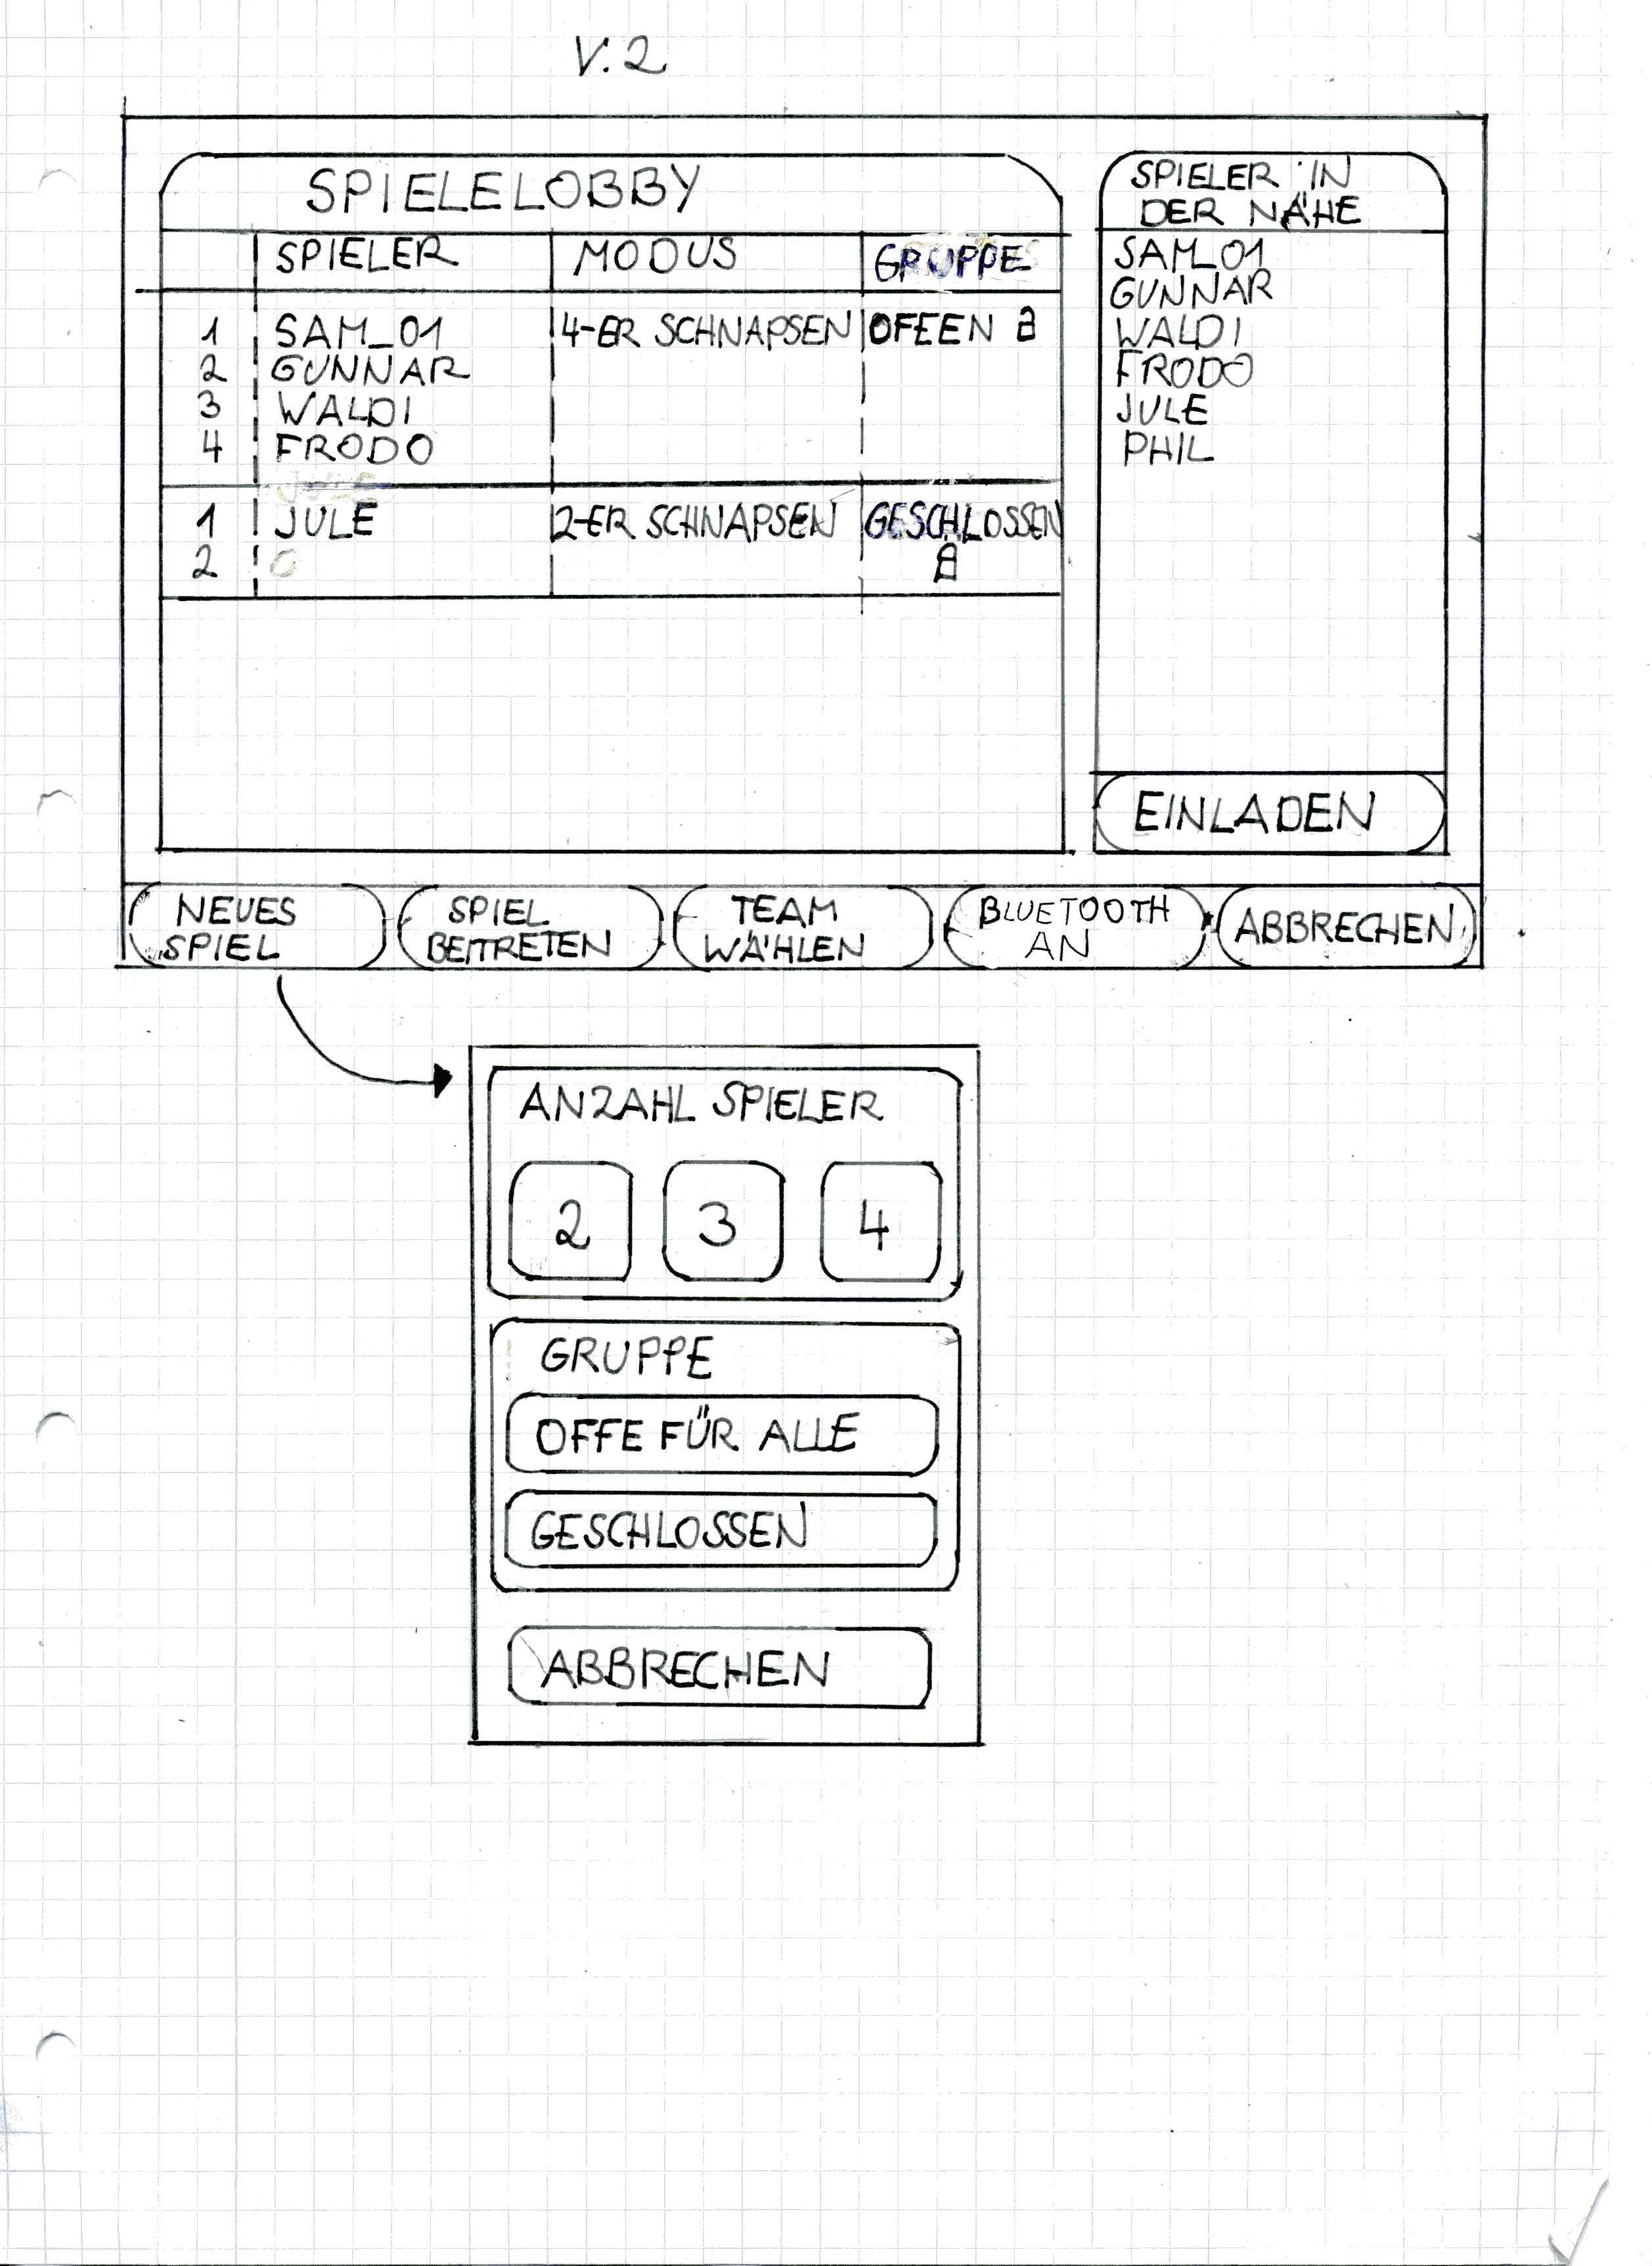 V.2
SPIELELOBBY
SPIELER MODUS GRUPPE
1 SAM_01 4-ER SCHNAPSEN OFEEN
2 GUNNAR
3 WALDI
4 FRODO
1 JULE 2-ER SCHNAPSEN GESCHLOSSEN
2
SPIELER IN
DER NÄHE
SAM_01
GUNNAR
WALDI
FRODO
JULE
PHIL
EINLADEN
NEUES
SPIEL
SPIEL
BEITRETEN
TEAM
WÄHLEN
BLUETOOTH
AN
ABBRECHEN
ANZAHL SPIELER
2 3 4
GRUPPE
OFFE FÜR ALLE
GESCHLOSSEN
ABBRECHEN